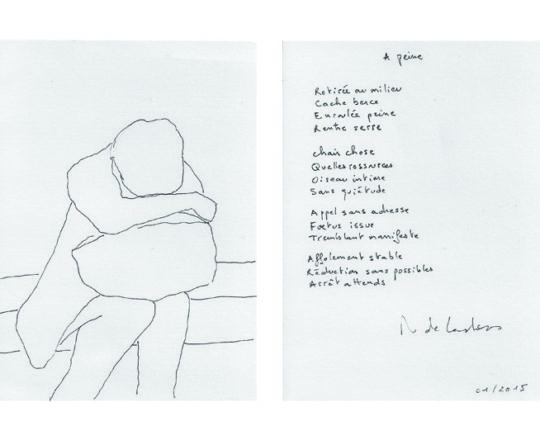 A peine
Retirée au milieu
Cache berce
Enroulée peine
Rentre serre
chair chose
Quelles ressources
Oiseau intime
Sans quiétude
Appel sans adresse
Fœtus issue
Tremblant manifeste
Affolement stable
Réduction sans possibles
Arrêt attends
de
01/2015